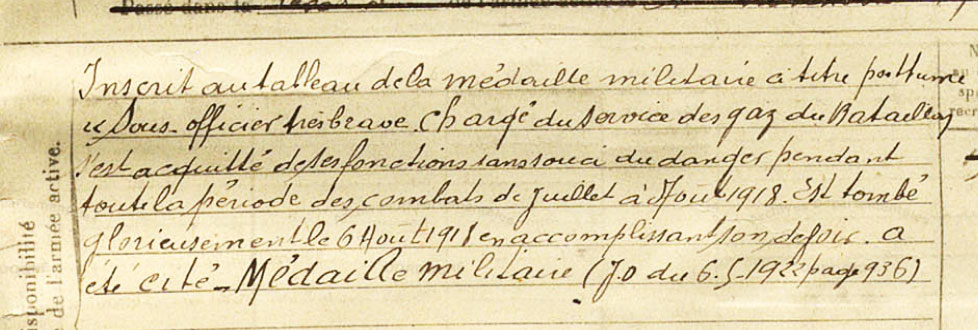 Passé dans la
Inscrit au tableau de la médaille militaire à titre posthume
« Sous-officier très brave. Chargé du Service des gaz du Bataillon
s'est acquitté de ses fonctions sans souci du danger pendant
toute la période des combats de Juillet à Aout 1918. Est tombé
glorieusement le 6 Aout 1918 en accomplissant son devoir. a
été cité - Médaille militaire (J.O du 6.5.1922 page 936)
sponibilité
de l'armée active.